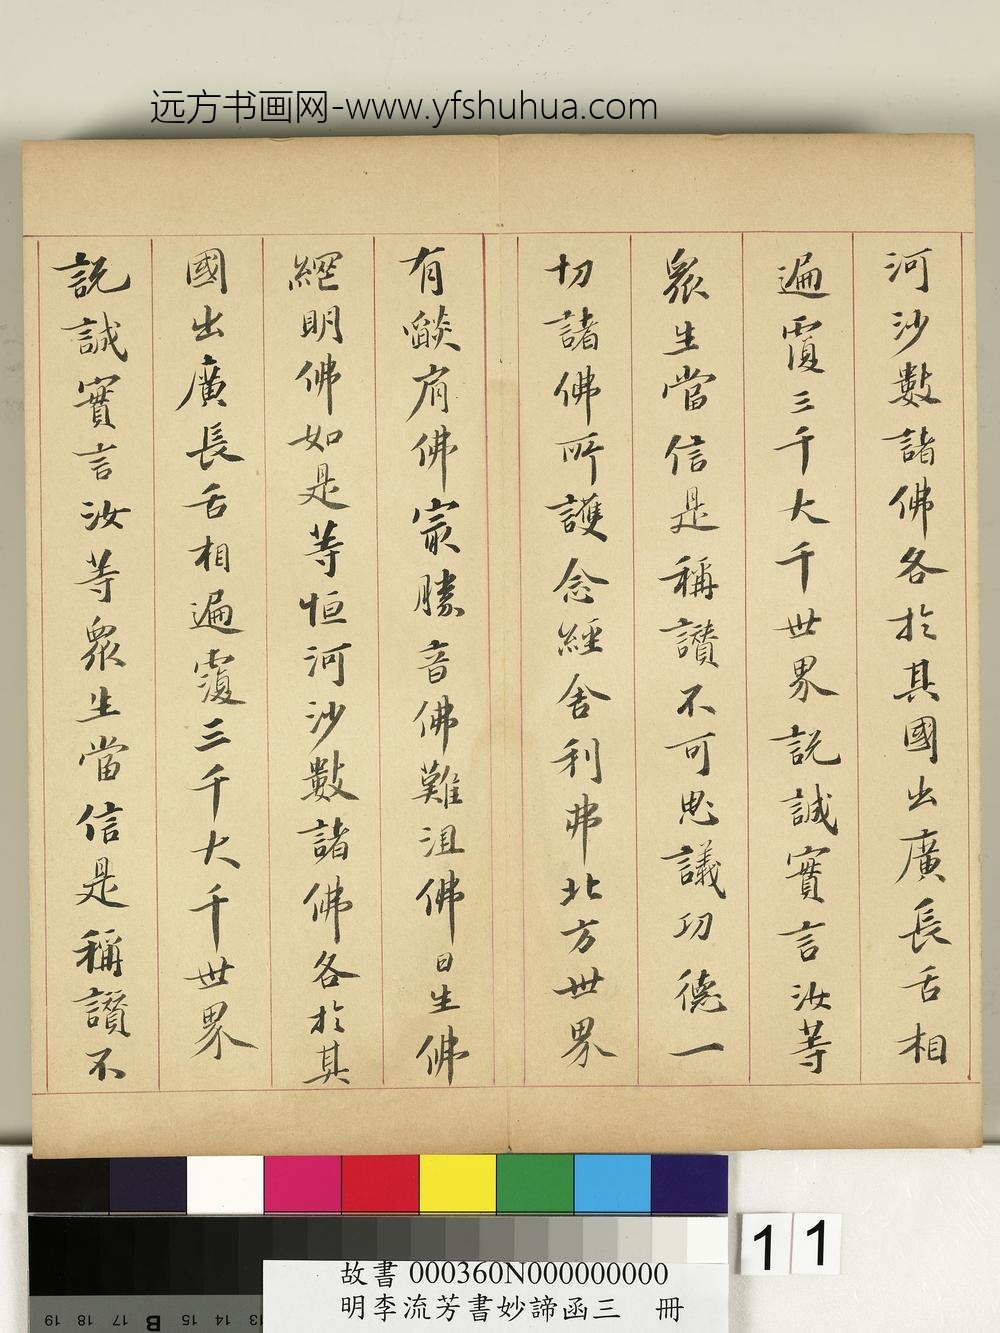 远方书画网-www.yfshuhua.com
河沙數諸佛各於其國出廣長舌相
遍覆三千大千世界說誠實言汝等
眾生當信是稱讚不可思議功德一
切諸佛所護念經舍利弗北方世界
有燄肩佛冣勝音佛難沮佛日生佛
網明佛如是等恒河沙數諸佛各於其
國出廣長舌相遍覆三千大千世界
說誠實言汝等眾生當信是稱讚不
11
故書000360N000000000
明李流芳書妙諦函三 冊
19 18 17 B 15 14 13